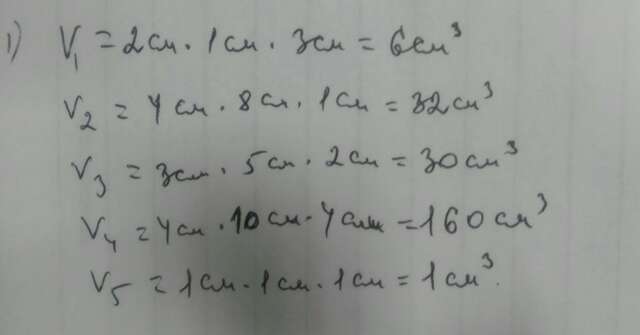 1) V₁ = 2см · 1см · 3см = 6см³
V₂ = 4см · 8см · 1см = 32см³
V₃ = 3см · 5см · 2см = 30см³
V₄ = 4см · 10см · 4см = 160см³
V₅ = 1см · 1см · 1см = 1см³.